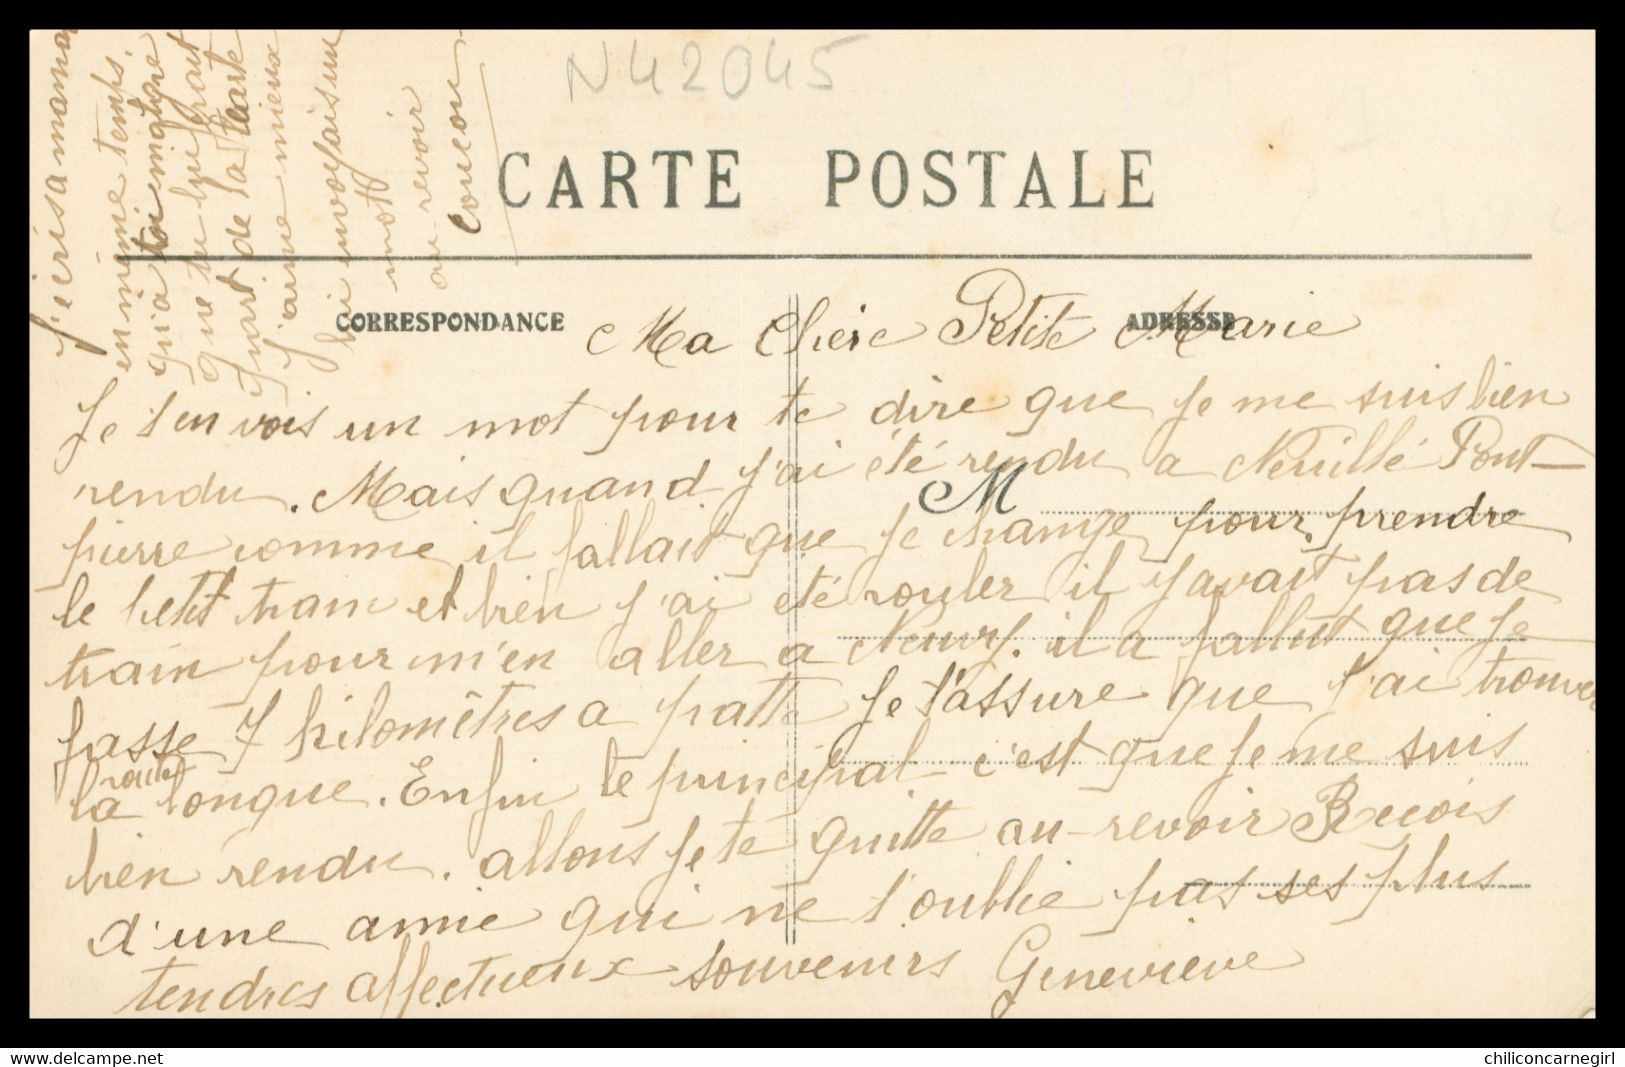 N42045
CARTE POSTALE
CORRESPONDANCE
ADRESSE
M
Ma Chère Petite Marie
Je t'envois un mot pour te dire que je me suis bien
rendu. Mais quand j'ai été rendu a Neuillé Pont-
pierre comme il fallait que je change pour prendre
le petit tram et bien j'ai été rouler il y avait pas de
train pour m'en aller a Neuvy. il a fallut que je
passe 7 kilomètres a patte je t'assure que j'ai trouver
la route longue. Enfin le principal c'est que je me suis
bien rendu. allons je te quitte au-revoir Recois
d'une amie qui ne t'oublie pas ses plus
tendres affectueux souvenirs Geneviève
J'écris a maman
en même temps
qu'a toi
que tu lui ferait
part de la carte
j'aime mieux
lui envoyer un
mot
au-revoir
coucou
delcampe.net
chiliconcarnegirl